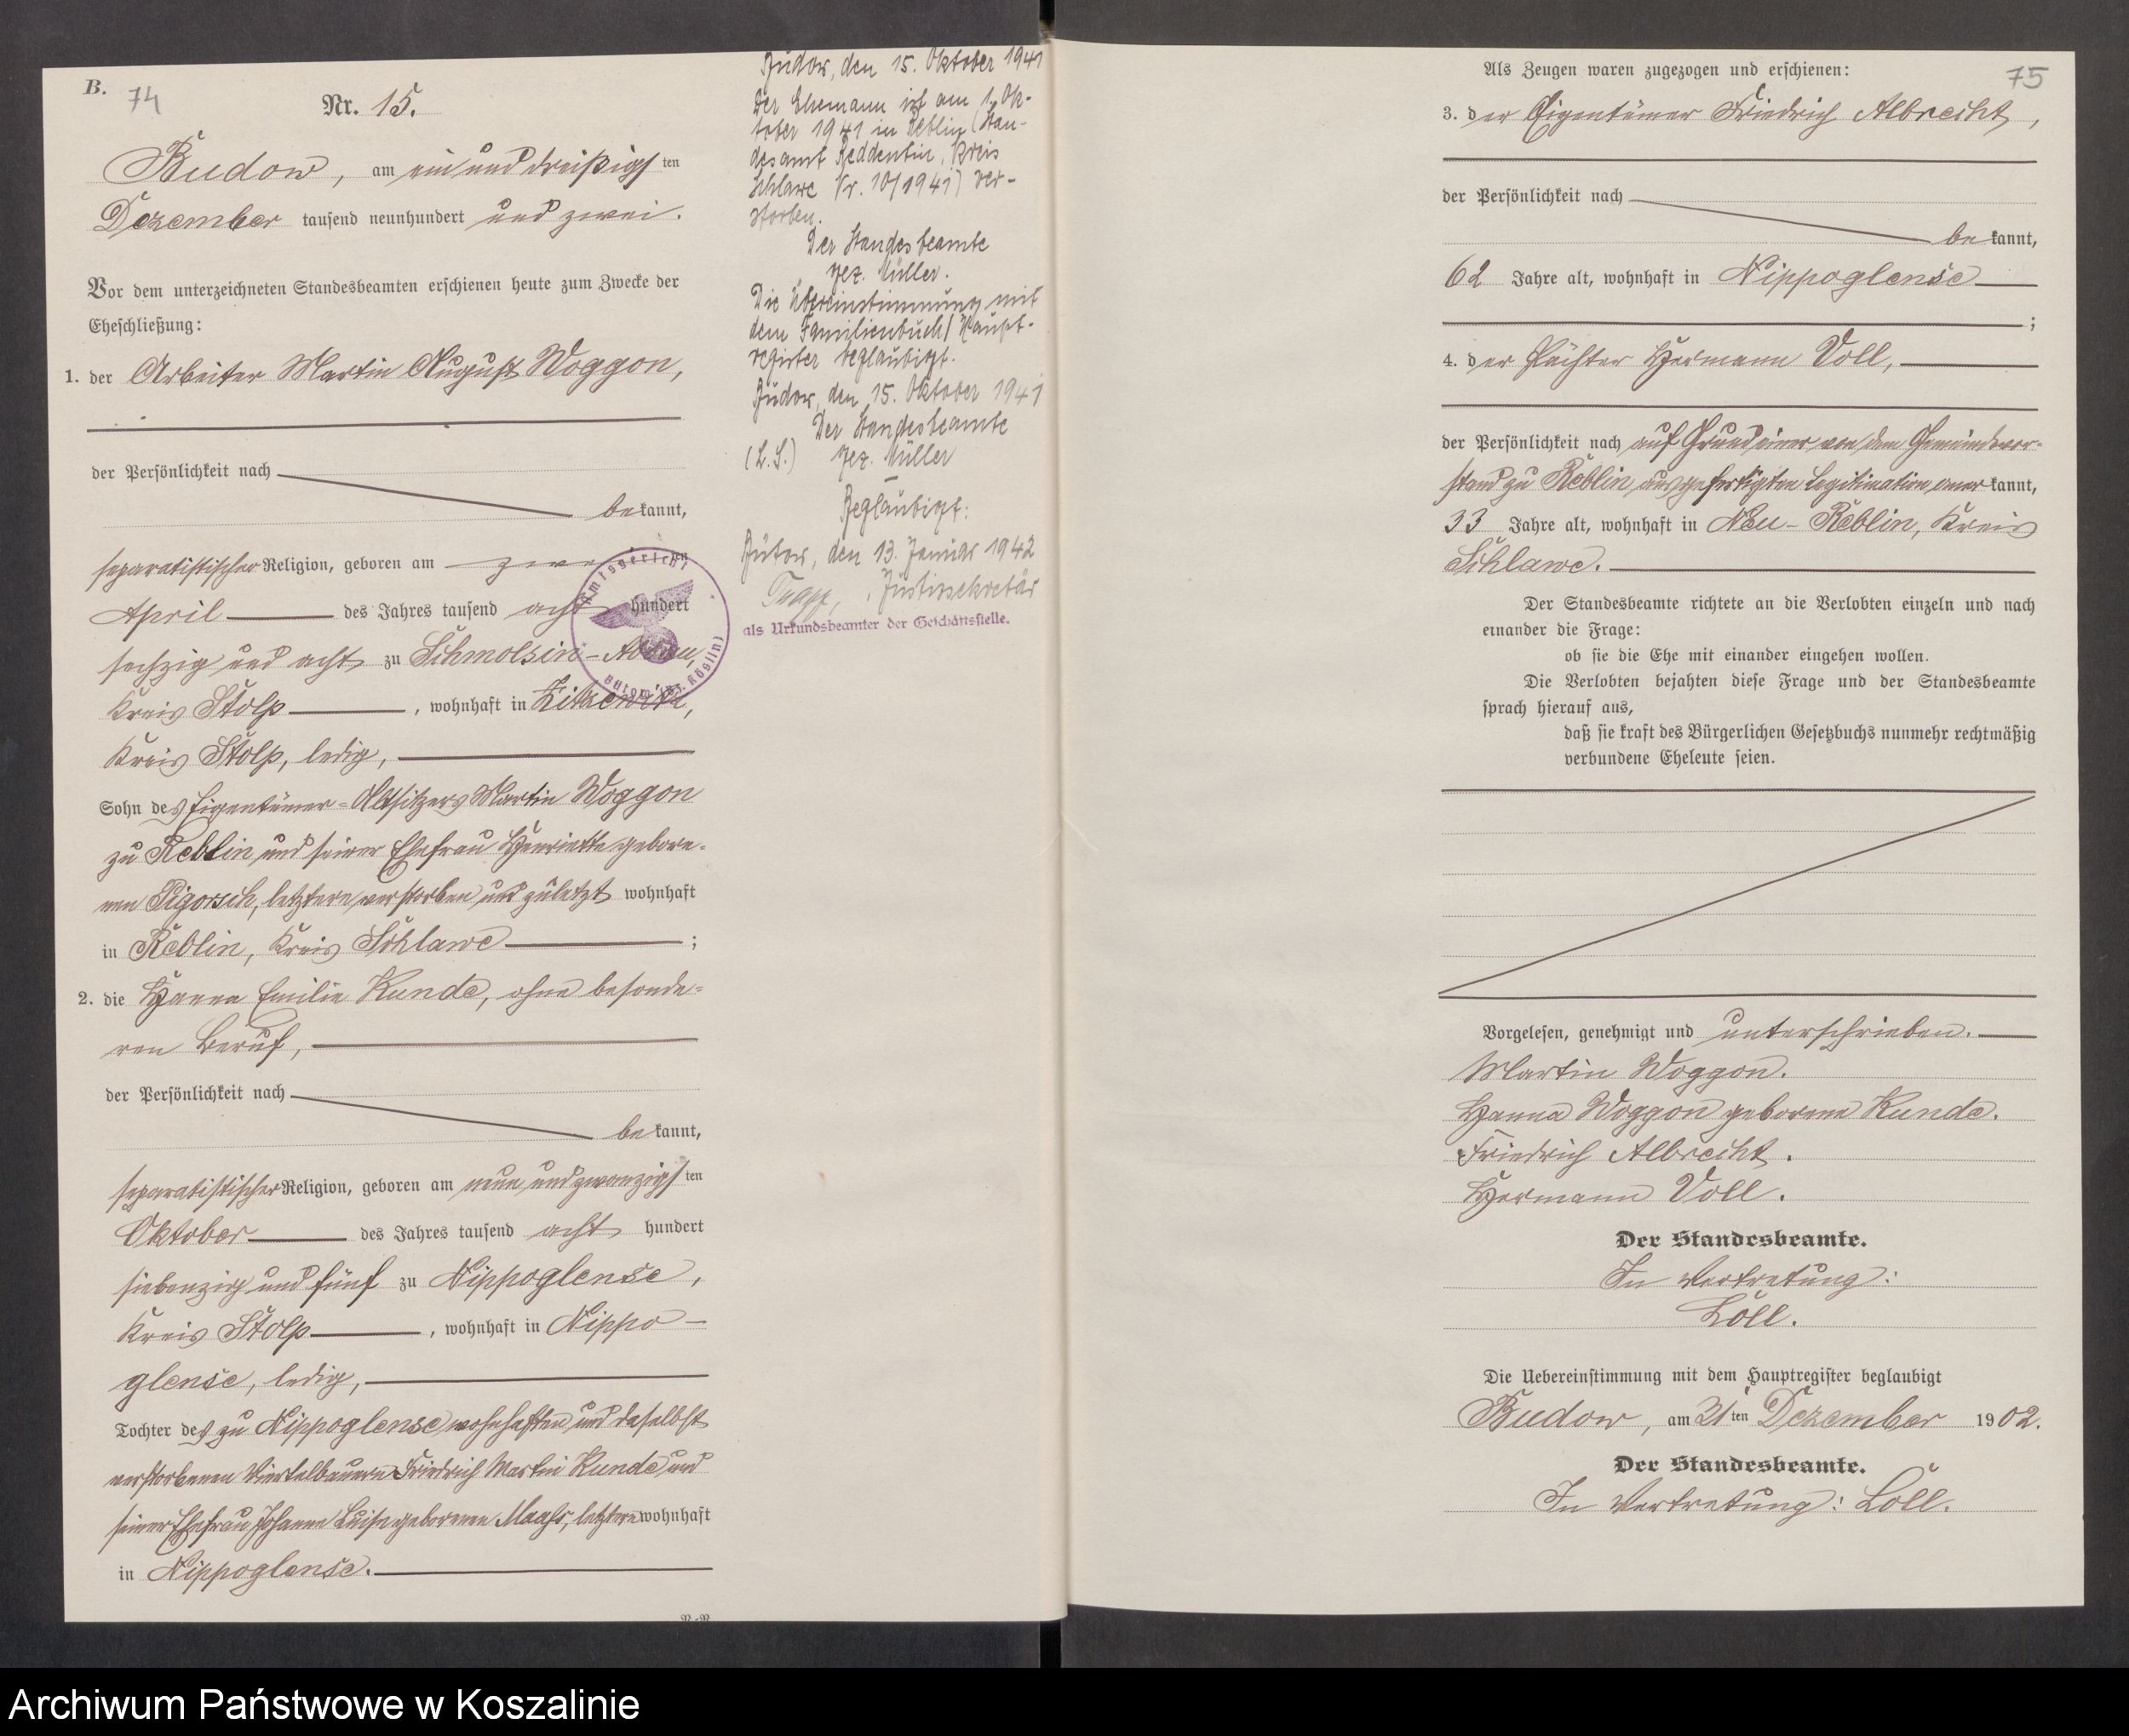 B.
74
Nr. 15.
Budow, am ein und dreißigsten
Dezember tausend neunhundert und zwei.
Vor dem unterzeichneten Standesbeamten erschienen heute zum Zwecke der
Eheschließung:
1. der Arbeiter Martin August Woggon,
der Persönlichkeit nach
bekannt,
separatistischer Religion, geboren am zweiten
April des Jahres tausend acht hundert
sechzig und acht zu Schmolsin-Abbau,
Kreis Stolp, wohnhaft in Zitzewitz,
Kreis Stolp, ledig,
Sohn des Eigentümer-Altsitzers Martin Woggon
zu Reblin und seiner Ehefrau Henriette gebore-
nen Pigorsch, letztere verstorben und zuletzt wohnhaft
in Reblin, Kreis Schlawe;
2. die Hanna Emilie Kunde, ohne besonde-
ren Beruf,
der Persönlichkeit nach
bekannt,
separatistischer Religion, geboren am neun und zwanzigsten
Oktober des Jahres tausend acht hundert
siebenzig und fünf zu Nippoglense,
Kreis Stolp, wohnhaft in Nippo-
glense, ledig,
Tochter des zu Nippoglense wohnhaften und daselbst
verstorbenen Viertelbauern Friedrich Martin Kunde und
seiner Ehefrau Johanne Luise geborenen Maahs, letztere wohnhaft
in Nippoglense.
Büdow, den 15. Oktober 1941
Der Ehemann ist am 1. Ok-
tober 1941 in Reblin (Stan-
desamt Reddentin, Kreis
Schlawe Nr. 10/1941) ver-
storben.
Der Standesbeamte
gez. Müller.
Die Übereinstimmung mit
dem Familienbuch/Haupt-
register beglaubigt.
Büdow, den 15. Oktober 1941
Der Standesbeamte
(L.S.) gez. Müller
Beglaubigt:
Bütow, den 13. Januar 1942
, Justizsekretär
als Urkundsbeamter der Geschäftsstelle.
Amtsgericht
Bütow (Bz. Köslin)
75
Als Zeugen waren zugezogen und erschienen:
3. der Eigentümer Friedrich Albrecht,
der Persönlichkeit nach
bekannt,
62 Jahre alt, wohnhaft in Nippoglense
;
4. der Pächter Hermann Voll,
der Persönlichkeit nach auf Grund einer von dem Gemeindevor-
stand zu Reblin ausgefertigten Legitimation anerkannt,
33 Jahre alt, wohnhaft in Neu-Reblin, Kreis
Schlawe.
Der Standesbeamte richtete an die Verlobten einzeln und nach
einander die Frage:
ob sie die Ehe mit einander eingehen wollen.
Die Verlobten bejahten diese Frage und der Standesbeamte
sprach hierauf aus,
daß sie kraft des Bürgerlichen Gesetzbuchs nunmehr rechtmäßig
verbundene Eheleute seien.
Vorgelesen, genehmigt und unterschrieben.
Martin Woggon.
Hanna Woggon geborene Kunde.
Friedrich Albrecht.
Hermann Voll.
Der Standesbeamte.
In Vertretung:
Löll.
Die Uebereinstimmung mit dem Hauptregister beglaubigt
Budow, am 31ten Dezember 1902.
Der Standesbeamte.
In Vertretung: Löll.
Archiwum Państwowe w Koszalinie